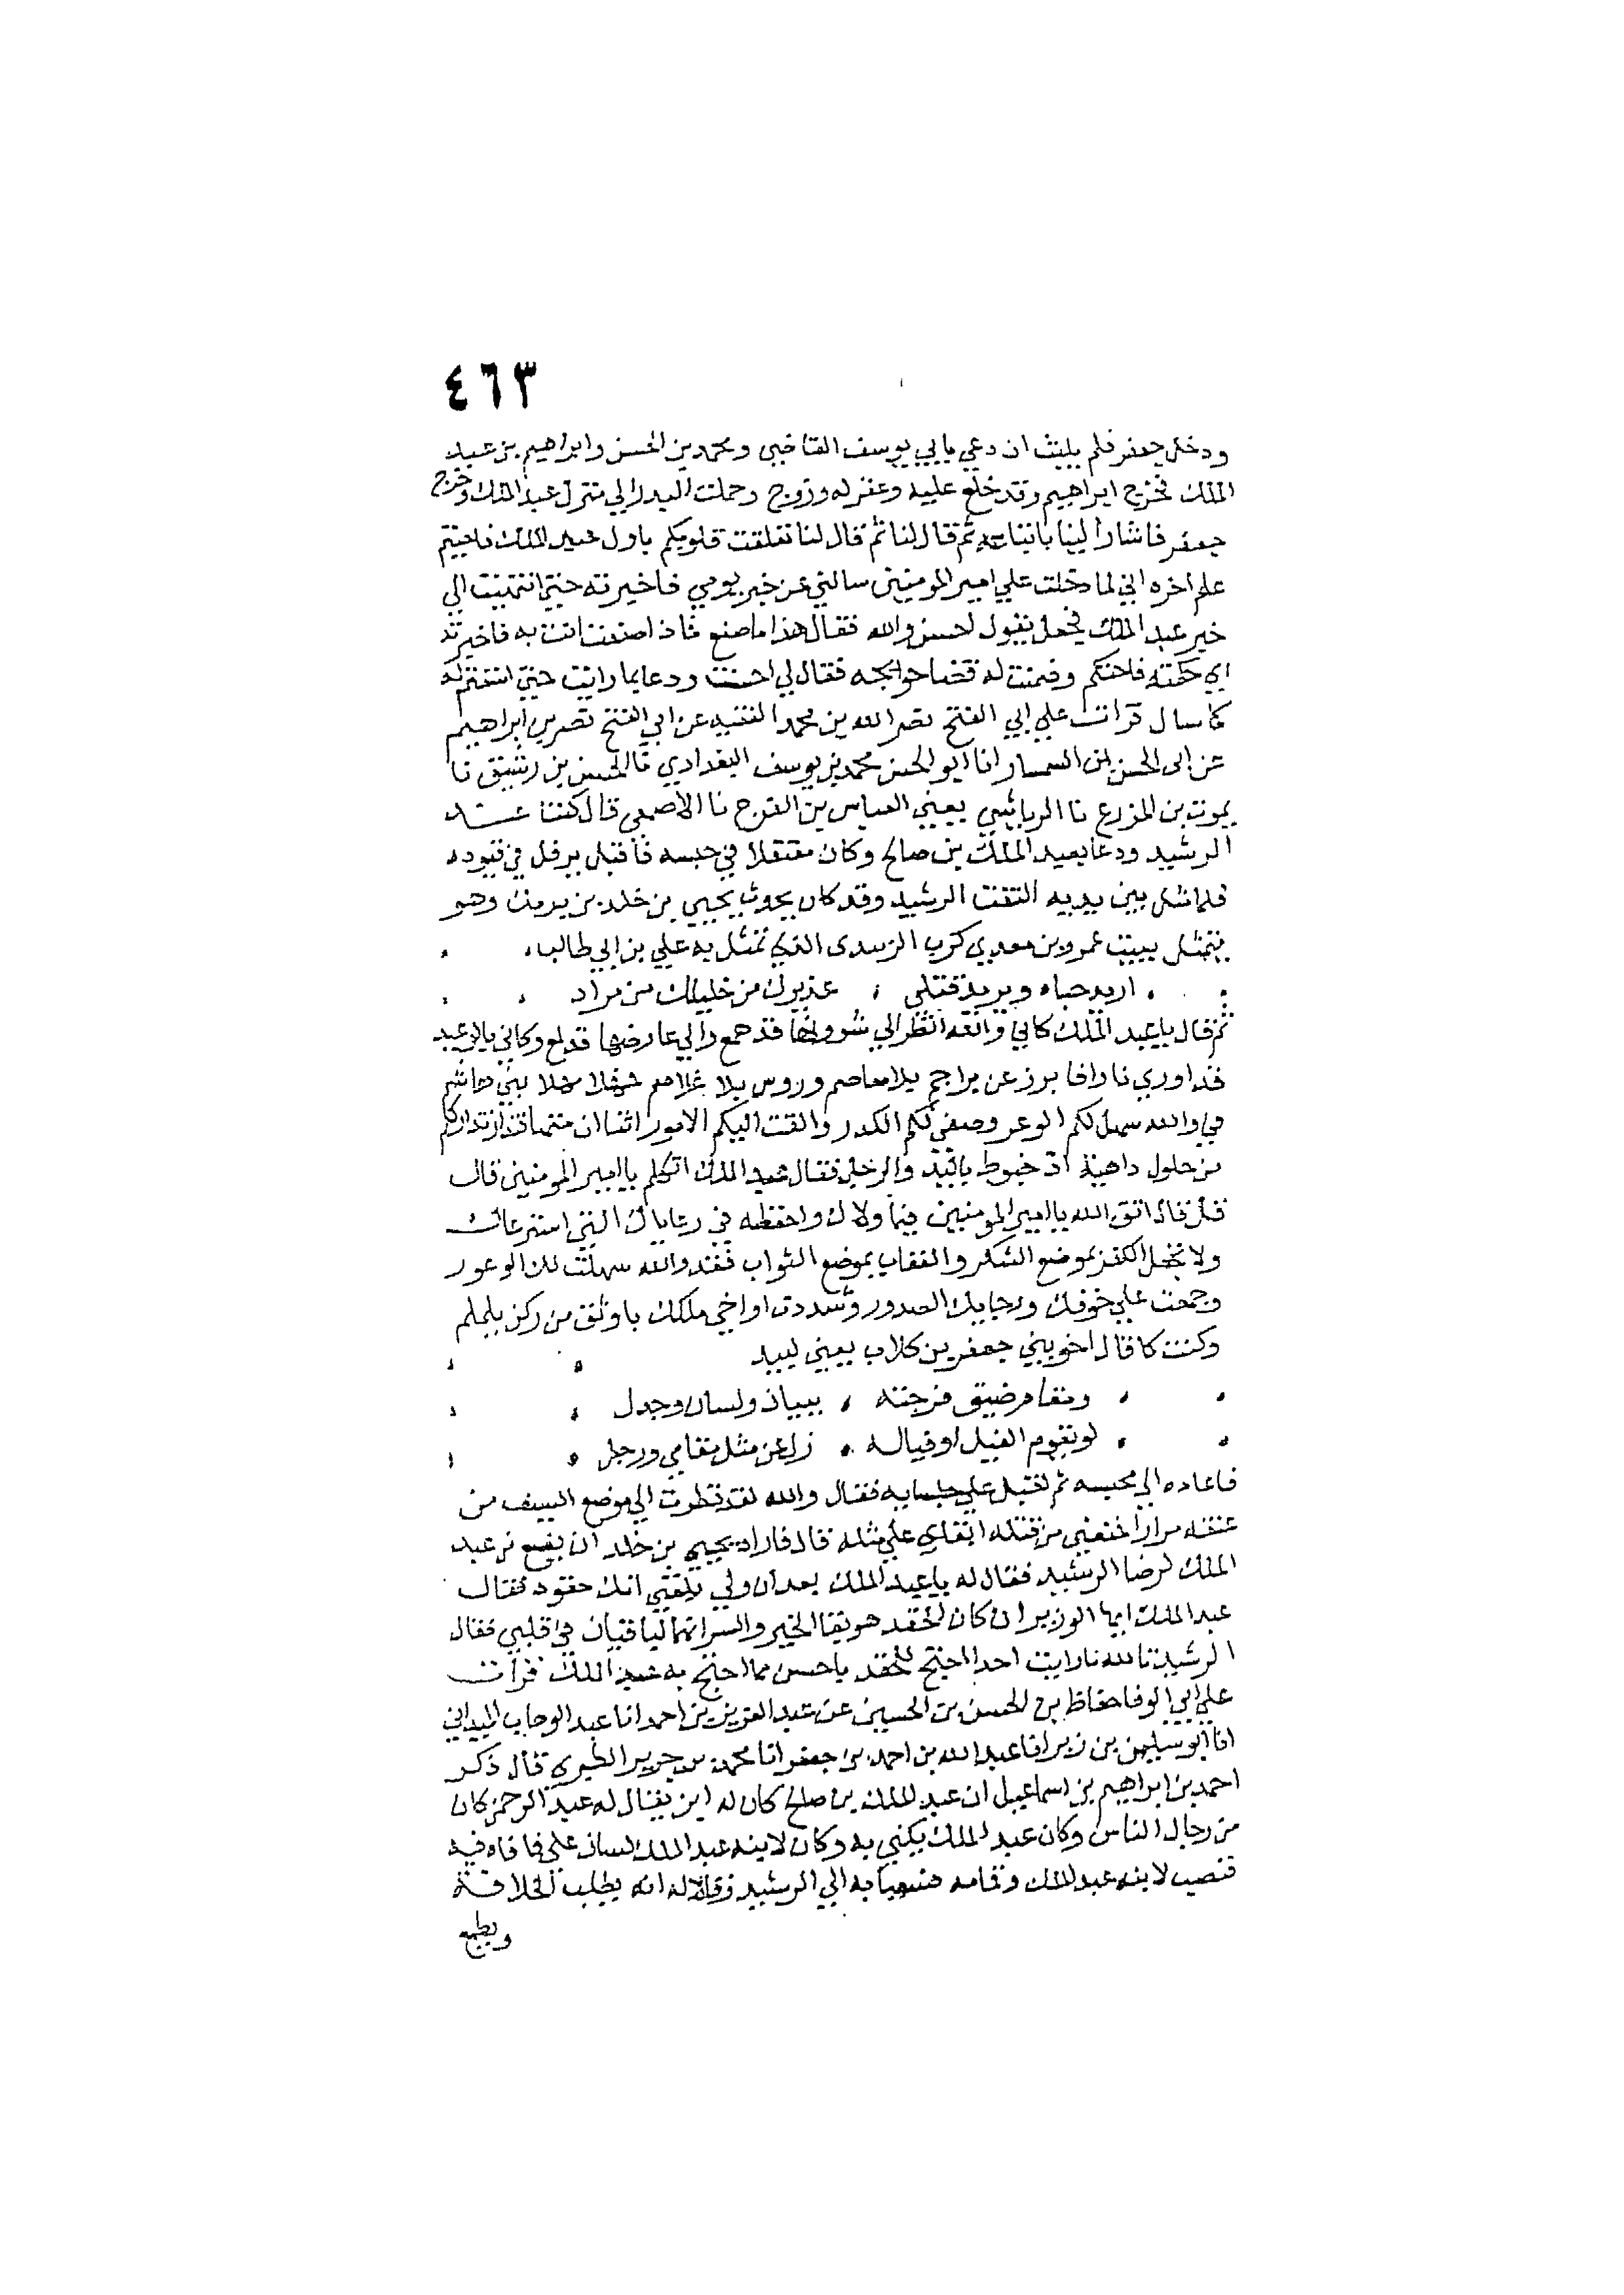 ٤٦٣
ودخل جعفر فلم يلبث ان دعي بابي يوسف القاضي ومحمد بن الحسن وابراهيم بن عبد
الملك فخرج ابراهيم وقد خلع عليه وعقد له وزوج وحملت البدر الي منزل عبد الملك وخرج
جعفر فاشار الينا باتباعه ثم قال لنا ثم قال لنا تعلقت قلوبكم باول عبد الملك فاحببتم
علم اخره اني لما دخلت علي امير المومنين سالني عن خبر يومي فاخبرته حتي انتهيت الي
خبر عبد الملك فجعل يقول احسن والله فقال هذا ما صنع فماذا صنعت انت به فاخبرته
اني حكمته فاحتكم وضمنت له قضا حوايجه فقال لي احسنت ودعا بما رايت حتي استتم له
كما سال قرات علي ابي الفتح نصر الله بن محمد الفقيه عن ابي الفتح نصر بن ابراهيم
عن ابي الحسن بن السمسار انا ابو الحسن محمد بن يوسف البغدادي قال الحسن بن رشيق نا
يموت بن المزرع نا الرياشي يعني العباس بن الفرج نا الاصمعي قال كنت عند
الرشيد ودعا بعبد الملك بن صالح وكان معتقلا في حبسه فاقبل يرفل في قيوده
فلما مثل بين يديه التفت الرشيد وقد كان يحدث يحيي بن خلد بن برمك وهو
يتمثل ببيت عمرو بن معدي كرب الزبيدي الذي تمثل به علي بن ابي طالب
اريد حباه ويريد قتلي عذيرك من خليلك من مراد
ثم قال يا عبد الملك كاني والله انظر الي شوبوبها قد همع والي عارضها قد لمع وكاني بالوعيد
قد اوري نارا فابرز عن براجم بلا معاصم وروس بلا غلاصم فمهلا مهلا بني هاشم
فبي والله سهل لكم الوعر وصفي لكم الكدر والقت اليكم الامور اثنا
من حلول داهية خبوط باليد والرجل فقال عبد الملك اتكلم يا امير المومنين قال
قل قال اتق الله يا امير المومنين فيما ولاك واحفظه في رعاياك التي استرعاك
ولا تجعل الكفر بموضع الشكر والعقاب بموضع الثواب فقد والله سهلت لك الوعور
وجمعت علي خوفك ورجايك الصدور وشددت اواخي ملكك باوثق من ركن يلملم
وكنت كما قال اخو بني جعفر بن كلاب يعني لبيد
ومقام ضيق فرجته ببيان ولسان وجدل
لو يقوم الفيل او فياله زل عن مثل مقامي ورحل
فاعاده الي محبسه ثم اقبل علي جلسايه فقال والله لقد نظرت الي موضع السيف من
عنقه مرارا فمنعني من قتله ابقاي علي مثله قال فاراد يحيي بن خلد ان يضع من عبد
الملك لرضا الرشيد فقال له يا عبد الملك بعد ان ولي بلغني انك حقود فقال
عبد الملك ايها الوزير ان كان الحقد هو بقا الخير والشر انهما لباقيان في قلبي فقال
الرشيد تالله ما رايت احدا احتج للحقد باحسن مما احتج به عبد الملك قرات
علي ابي الوفا حفاظ بن الحسن بن الحسين عن عبد العزيز بن احمد انا عبد الوهاب الميداني
انا ابو سليمن بن زبر انا عبد الله بن احمد بن جعفر انا محمد بن جرير الطبري قال ذكر
احمد بن ابراهيم بن اسماعيل ان عبد الملك بن صالح كان له ابن يقال له عبد الرحمن كان
من رجال الناس وكان عبد الملك يكني به وكان لابنه عبد الملك لسان علي فافاه فيه
فنصب لابنه عبد الملك وقمامه فسعيا به الي الرشيد وقالا له انه يطلب الخلافة
ويطمع